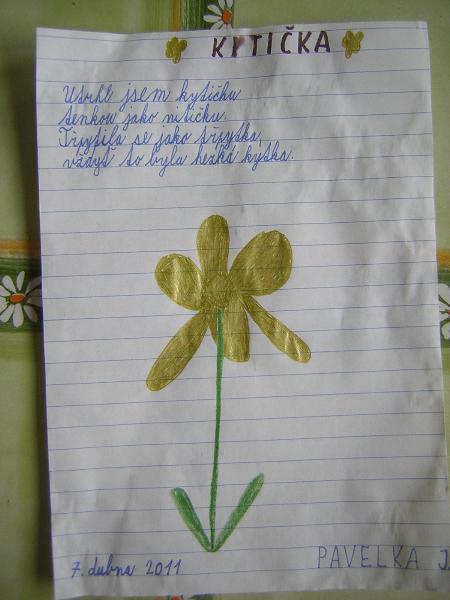 KYTIČKA
Utrhl jsem kytičku
tenkou jako nitičku.
Třpytila se jako třpytka,
vždyť to byla hezká kytka.
7. dubna 2011
PAVELKA J.